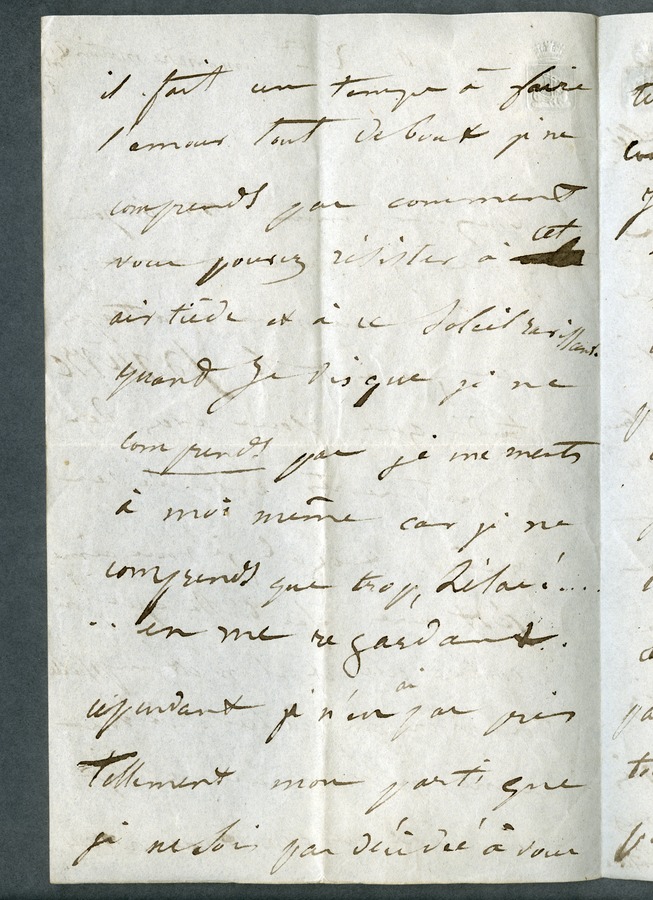 il fait un temps à faire
l'amour tout debout je ne
comprends pas comment
vous pouvez résister à cet
air tiède et à ce soleil ravissant.
quand je dis que je ne
comprends pas je me ments
à moi même car je ne
comprends que trop, hélas!....
.. en me regardant.
cependant je n'en ai pas pris
tellement mon parti que
je ne sois pas décidé à vous